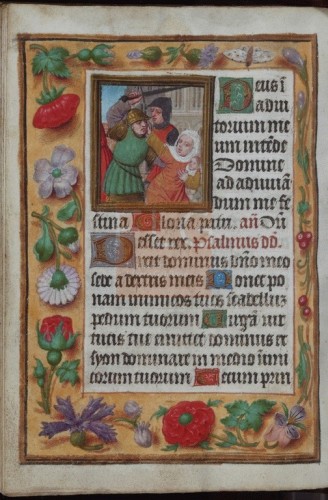 Deus ī
adiu
torium me
um intēde
Domine
ad adiuuā
dum me fe
stina Gloria patri. añ Dū
esset rex. Psalmus dd.
Dixit dominus dn̄o meo
sede a dextris meis Donec po
nam inimicos tuos scabellum
pedum tuorum Uirgā uir
tutis tue emittet dominus ex
syon dominare in medio inimi
corum tuorum Tecum prin